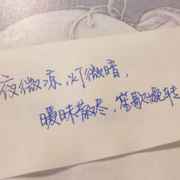 夜微凉,灯微暗,
暧昧散尽,笙歌婉转